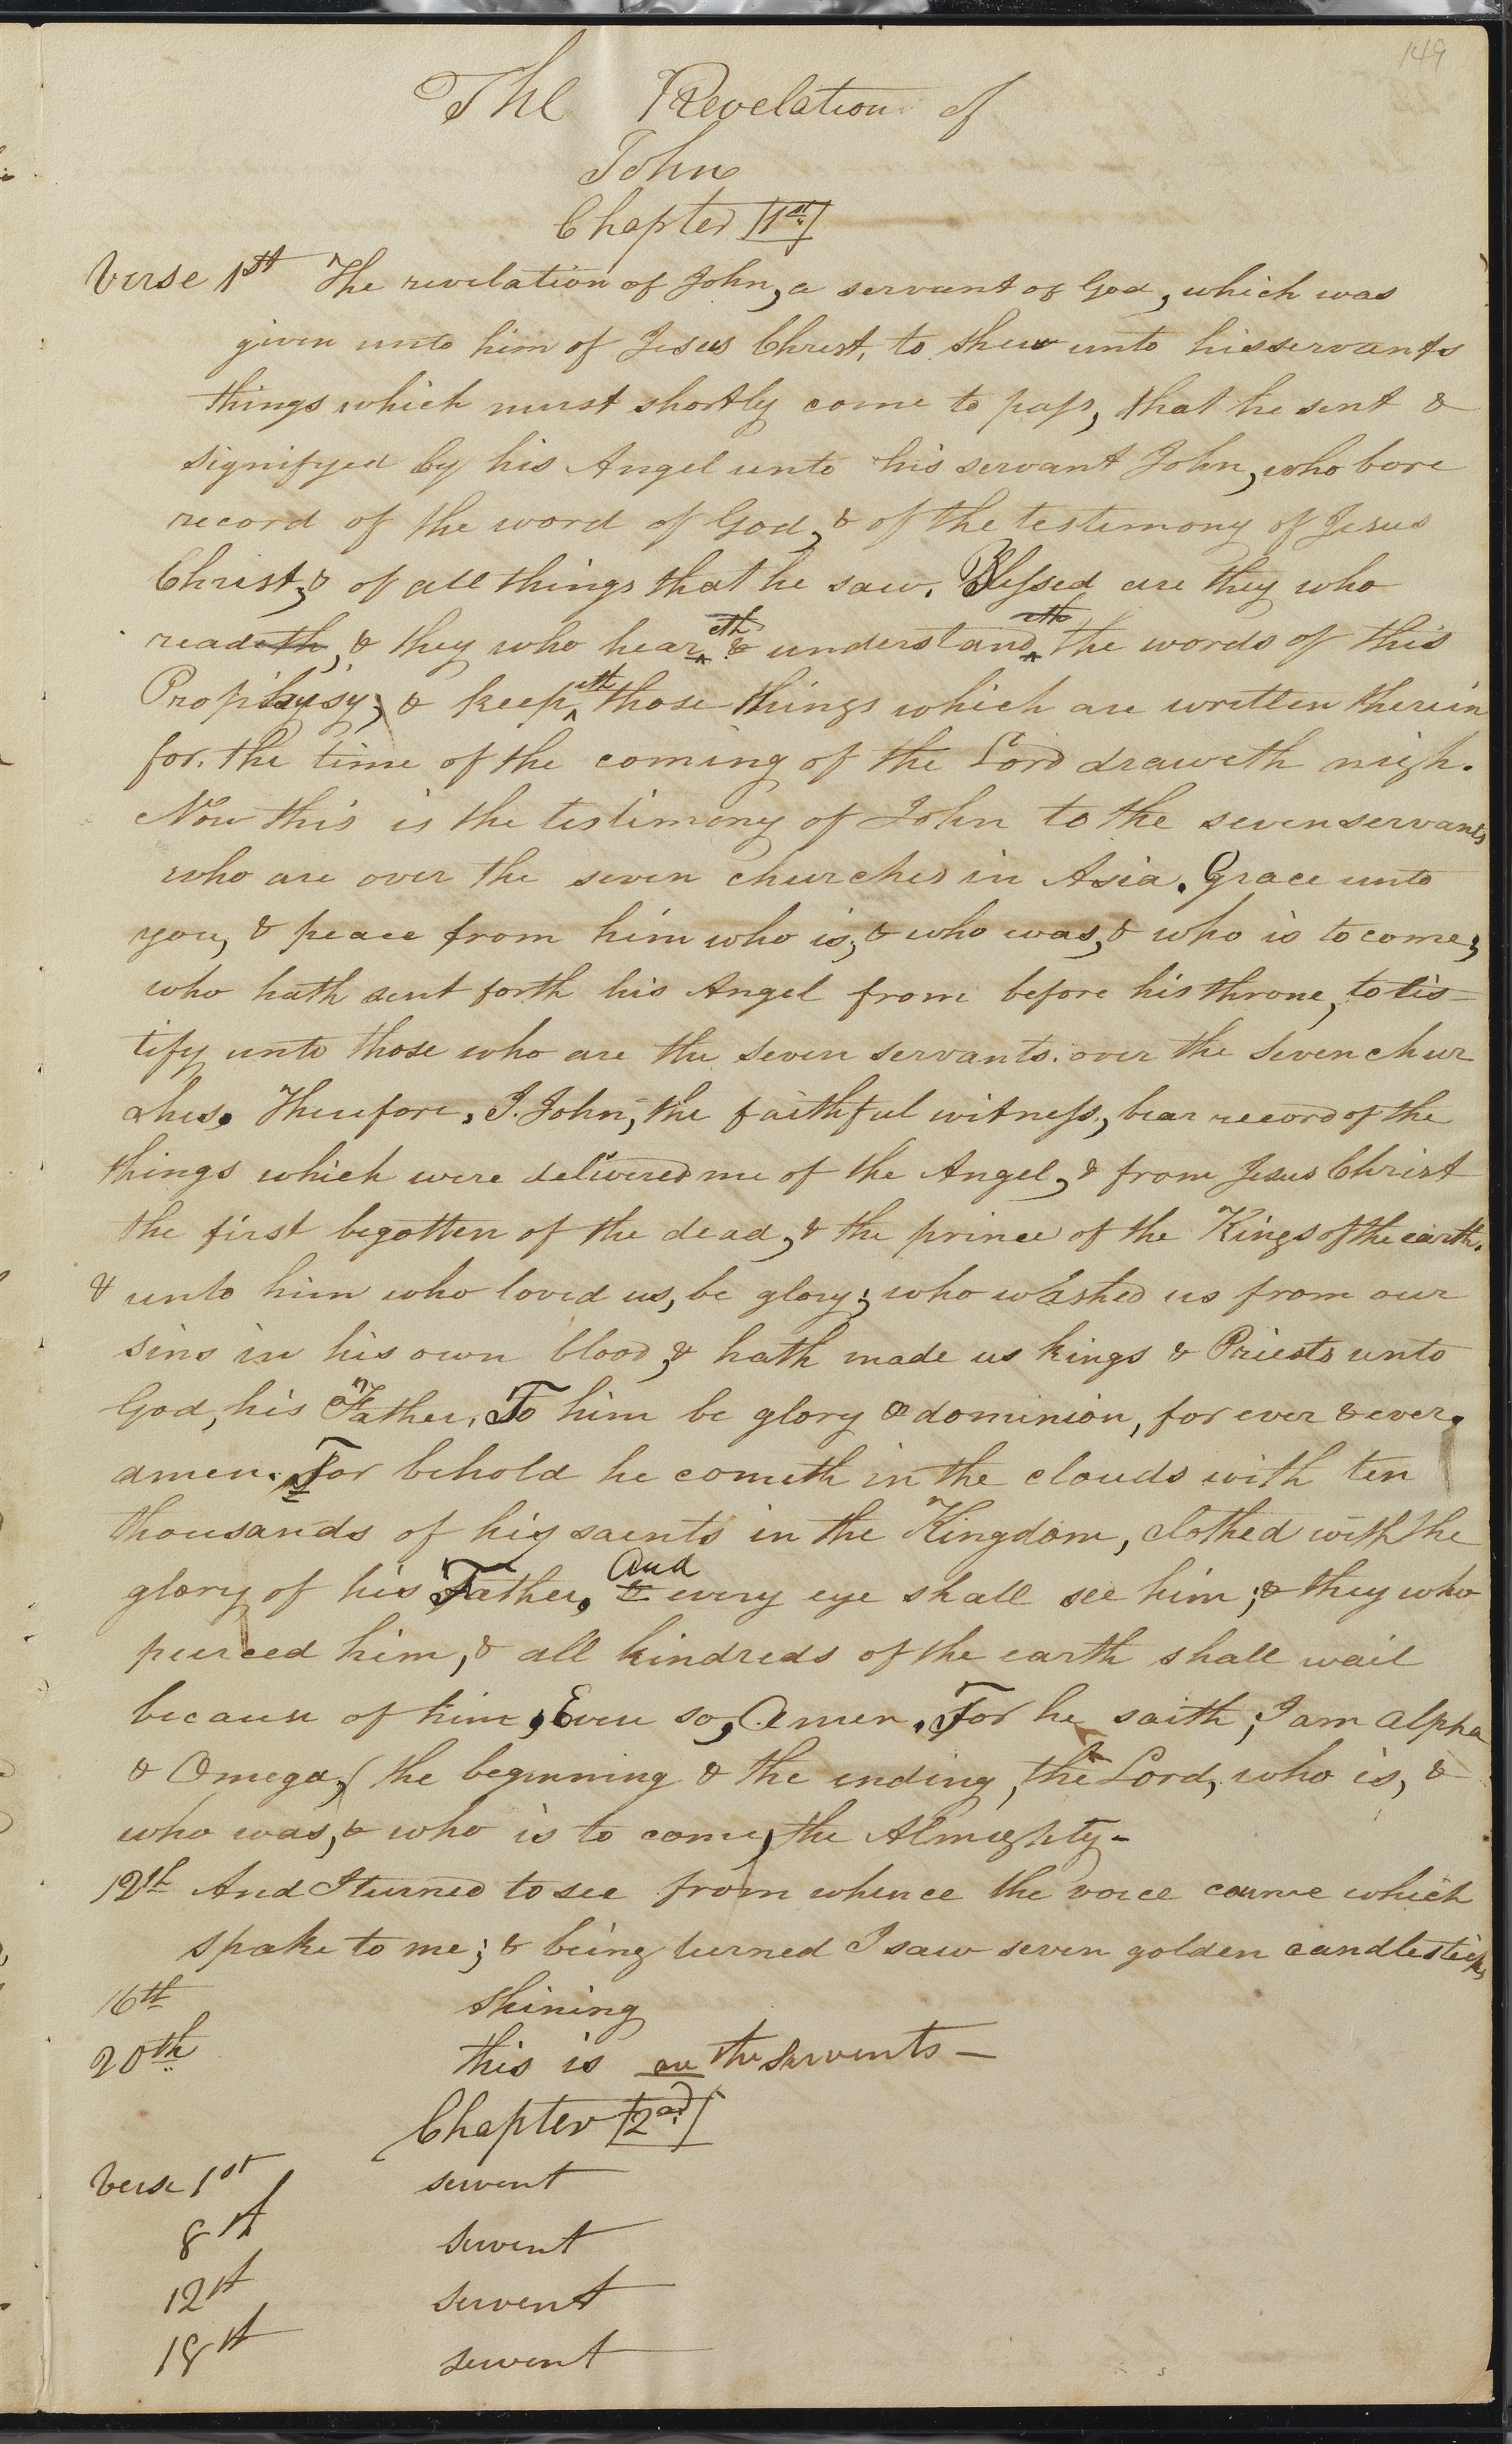 149
The Revelation of
John
Chapter 1st
Verse 1st The revelation of John, a servant of God, which was
given unto him of Jesus Christ, to shew unto his servants
things which must shortly come to pass, that he sent &
signifyed by his Angel unto his servant John, who bore
record of the word of God, & of the testimony of Jesus
Christ, & of all things that he saw. Blessed are they who
readeth, & they who heareth & understandeth the words of this
Prophysy, & keepeth those things which are written therein
for the time of the coming of the Lord draweth nigh.
Now this is the testimony of John to the seven servants
who are over the seven churches in Asia. Grace unto
you, & peace from him who is, & who was, & who is to come;
who hath sent forth his Angel from before his throne, to tes-
tify unto those who are the seven servants over the seven chur
ches. Therefore, I. John, the faithful witness, bear record of the
things which were delivered me of the Angel, & from Jesus Christ
the first begotten of the dead, & the prince of the Kings of the earth.
& unto him who loved us, be glory; who washed us from our
sins in his own blood, & hath made us kings & Priests unto
God, his Father. To him be glory & dominion, for ever & ever.
amen. For behold he cometh in the clouds with ten
thousands of his saints in the Kingdom, clothed with the
glory of his Father. And & every eye shall see him; & they who
pierced him, & all kindreds of the earth shall wail
because of him, Even so, Amen. For he saith, I am alpha
& Omega, the beginning & the ending, the Lord, who is, &
who was, & who is to come, the Almighty-
12th And I turned to see from whence the voice came which
spake to me; & being turned I saw seven golden candlesticks
16th shining
20th this is are the servents —
Chapter 2nd
Verse 1st servent
8th servent
12th servent
18th servent